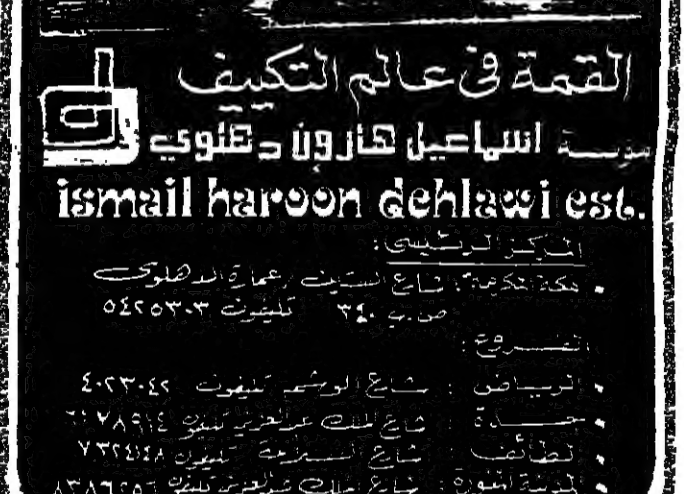 القمة فى عالم التكييف
مؤسسة اسماعيل هارون دهلوي
ismail haroon dehlawi est.
المركز الرئيسى:
• مكة المكرمة: شارع الستين عمارة الدهلوى
ص.ب ٣٤٠ تليفون ٥٤٢٥٣٠٣
الفروع:
• الرياض: شارع الوشم تليفون ٤٠٢٣٠٤٢
• جدة: شارع الملك عبدالعزيز تليفون
• الطائف: شارع تليفون ٧٣٢٤١٤٨
• المدينة المنورة: شارع الملك عبدالعزيز تليفون ٨٣٨٦٢٥٦